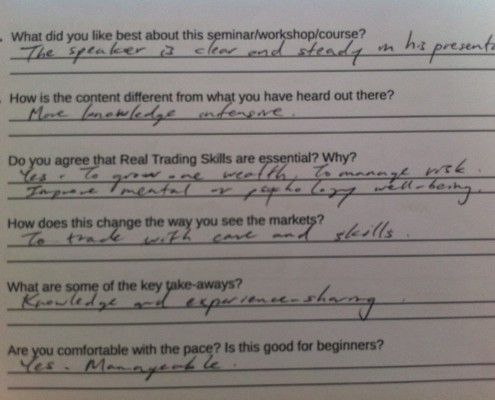 What did you like best about this seminar/workshop/course?
The speaker is clear and steady in his present
How is the content different from what you have heard out there?
More knowledge intensive.
Do you agree that Real Trading Skills are essential? Why?
Yes. To grow one wealth, To manage risk.
Improve mental or psychology well-being.
How does this change the way you see the markets?
To trade with care and skills.
What are some of the key take-aways?
Knowledge and experience-sharing
Are you comfortable with the pace? Is this good for beginners?
Yes. Manageable.